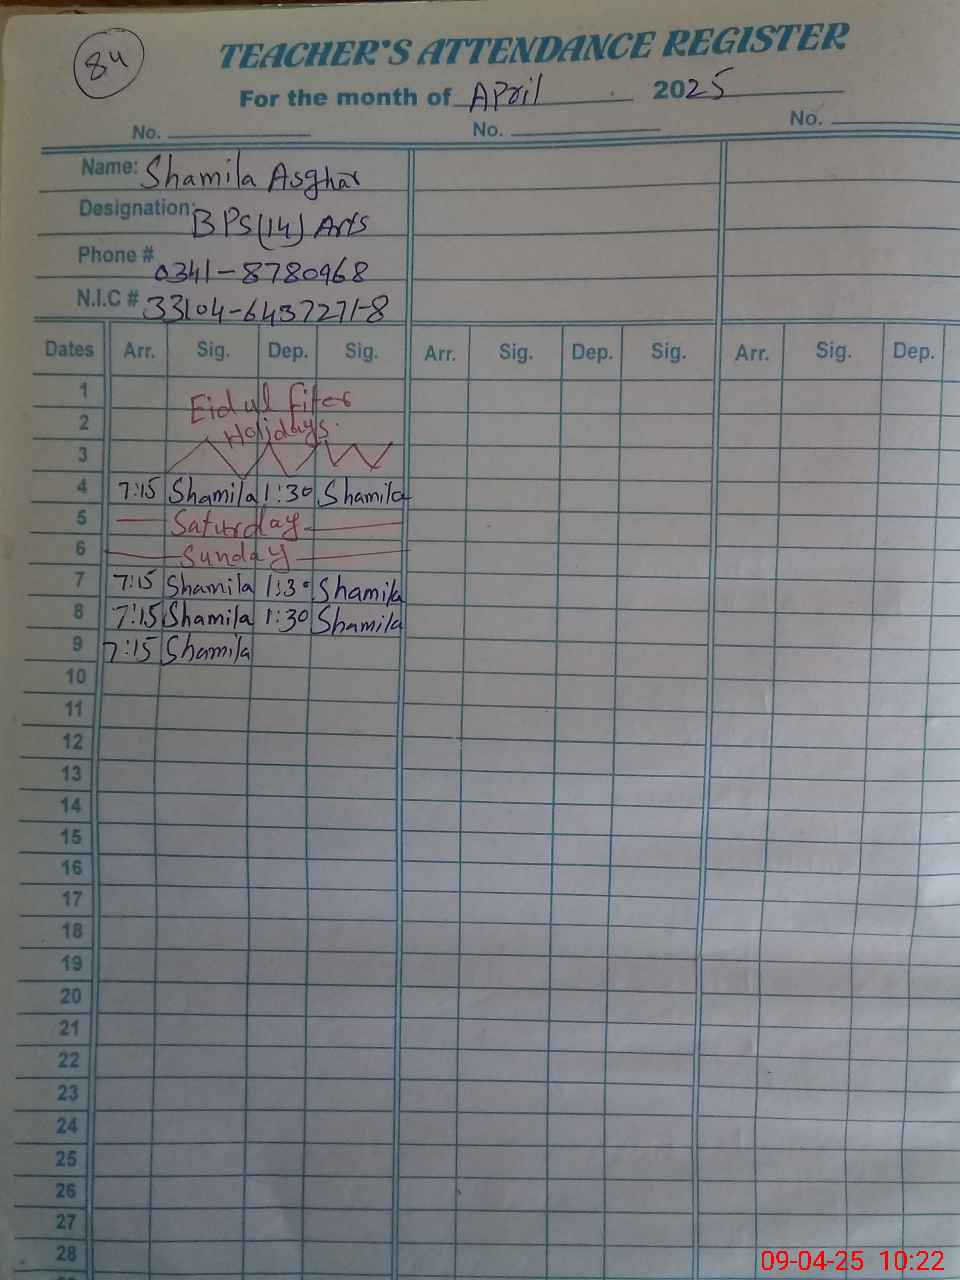 84
TEACHER'S ATTENDANCE REGISTER
For the month of April 2025
No. No. No.
Name: Shamila Asghar
Designation: BPS(14) Arts
Phone # 0341-8780968
N.I.C # 33104-6437271-8
Dates Arr. Sig. Dep. Sig. Arr. Sig. Dep. Sig. Arr. Sig. Dep.
1 Eid ul fiter
2 Holidays.
3
4 7:15 Shamila 1:30 Shamila
5 Saturday
6 Sunday
7 7:15 Shamila 1:30 Shamila
8 7:15 Shamila 1:30 Shamila
9 7:15 Shamila
10
11
12
13
14
15
16
17
18
19
20
21
22
23
24
25
26
27
28
09-04-25 10:22